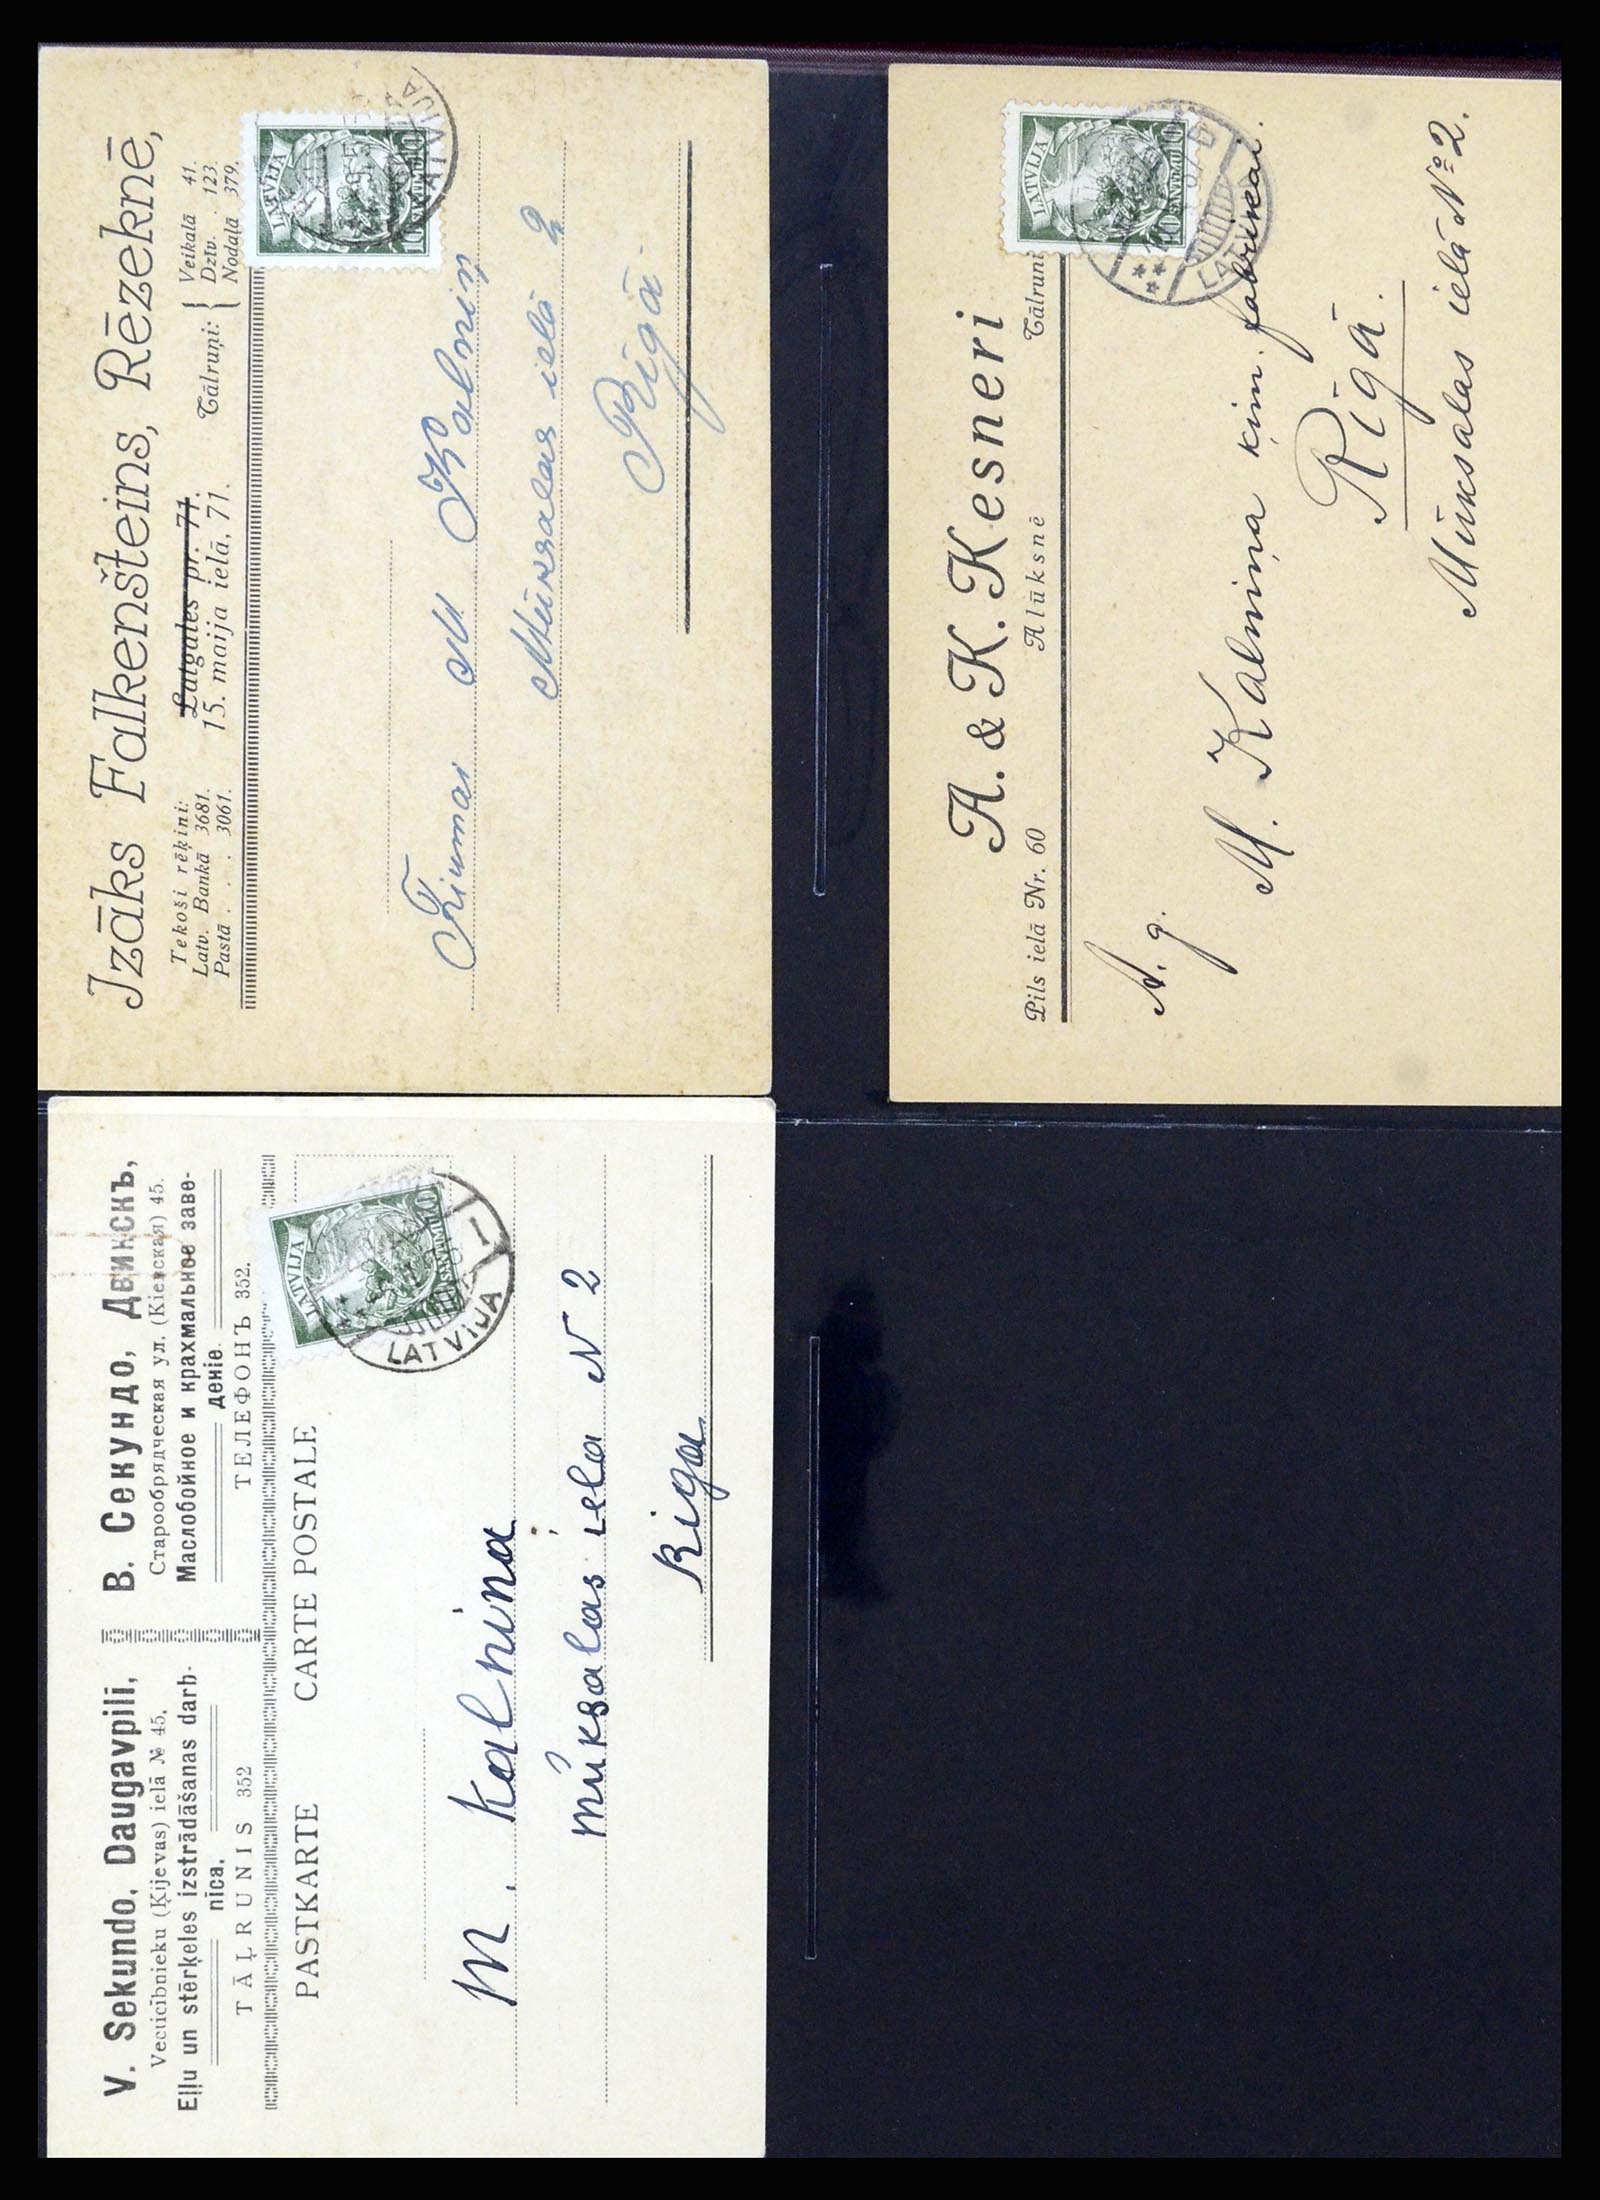 Izāks Falkenšteins, Rēzeknē,
Tekoši rēķini:
Latv. Bankā 3681.
Pastā . . . 3061.
Latgales pr. 71.
15. maija ielā, 71.
Tālruņi:
Veikalā 41.
Dzīv. . 123.
Nodaļā 379.
LATVIJA
10 SANTIMU 10
LATVIJA
Firmai M Kalniņ
Mūksalas ielā 2
Rīgā
A. & K. Kesneri
Pils ielā Nr. 60
Alūksnē
Tālruni
LATVIJA
10 SANTIMU 10
LATVIJA
A. g.
M. Kalniņa ķim. fabrikai.
Rīgā.
Mūksalas ielā № 2.
V. Sekundo, Daugavpilī,
Vecticībnieku (Ķijevas) ielā № 45.
Eļļu un stērķeles izstrādāšanas darb-
nīca.
TĀĻRUNIS 352
В. Секундо, Двинскъ,
Старообрядческая ул. (Кіевская) 45.
Маслобойное и крахмальное заве-
деніе.
ТЕЛЕФОНЪ 352.
PASTKARTE CARTE POSTALE
LATVIJA
SANTIMU 10
LATVIJA
I
M. Kalnina
mūksalas iela N 2
Riga